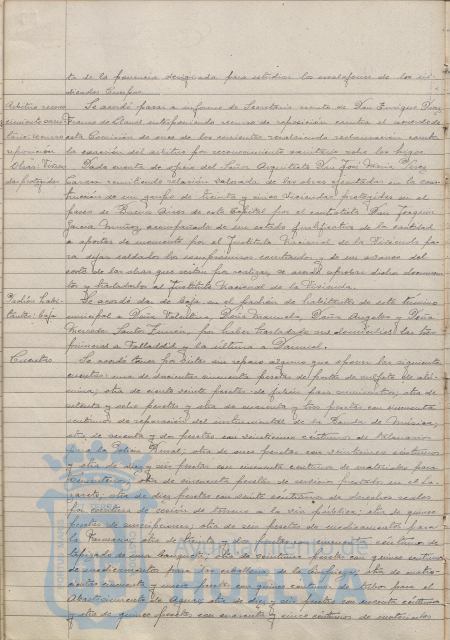 ta de la ponencia designada para estudiar los escalafones de los
Cuerpos.
Arbitrio reconocimiento
Se acordó pasar a informe de Secretaría escrito de Don Enrique Díaz
interponiendo recurso de reposición contra el acuerdo de
esta Comisión de once de los corrientes
reposición
la exacción del arbitrio por reconocimiento sanitario sobre los higos.
Obras: Viviendas protegidas
Dada cuenta de oficio del Señor Arquitecto Don José María Pérez
Carasa remitiendo relación valorada de las obras ejecutadas en la construcción
de un grupo de treinta y cinco viviendas protegidas en el
paseo de Buena Vista de esta Capital por el contratista Don Joaquín
García acompañada de un estado justificativo de la cantidad
a aportar de momento por el Instituto Nacional de la Vivienda para
dejar saldados los compromisos contraídos y de un avance del
coste de las obras que restan por realizar, se acordó aprobar dichos documentos
y trasladarlos al Instituto Nacional de la Vivienda.
Padrón habitantes: baja
Se acordó dar de baja en el padrón de habitantes de este término
municipal a Doña Valentina, Doña Manuela, Doña Angeles y Doña
Mercedes Santos por haber trasladado sus domicilios las tres
primeras a Valladolid y la última a
Cuentas
Se acordó tener por vistas sin reparo alguno que oponer las siguientes
cuentas: una de doscientas cincuenta pesetas de portes de sulfato de alúmina;
otra de ciento veinte pesetas de para suministros; otra de
setenta y ocho pesetas y otra de cuarenta y tres pesetas con cincuenta
céntimos de reparación del instrumental de la Banda de Música;
otra de sesenta y dos pesetas con veinticinco céntimos de
para la Policía Rural; otra de once pesetas con veinticinco céntimos
y otra de diez y seis pesetas con cincuenta céntimos de materiales para
Cementerios; otra de cincuenta pesetas de servicios prestados en el
otra de diez pesetas con veinte céntimos de derechos reales
por escritura de cesión de terreno a la vía pública; otra de quince
pesetas de suscripciones; otra de seis pesetas de medicamentos para
la Farmacia; otra de treinta y dos pesetas con cincuenta céntimos de
tapizado de una banqueta; otra de
de medicamentos para los caballos de la Limpieza; otra de
cuatrocientas cincuenta y cinco pesetas con quince céntimos de tubos para el
Abastecimiento de Aguas; otra de diez y seis pesetas con sesenta céntimos
y otra de quince pesetas con cuarenta y cinco céntimos de materiales
Ayuntamiento de
HUELVA